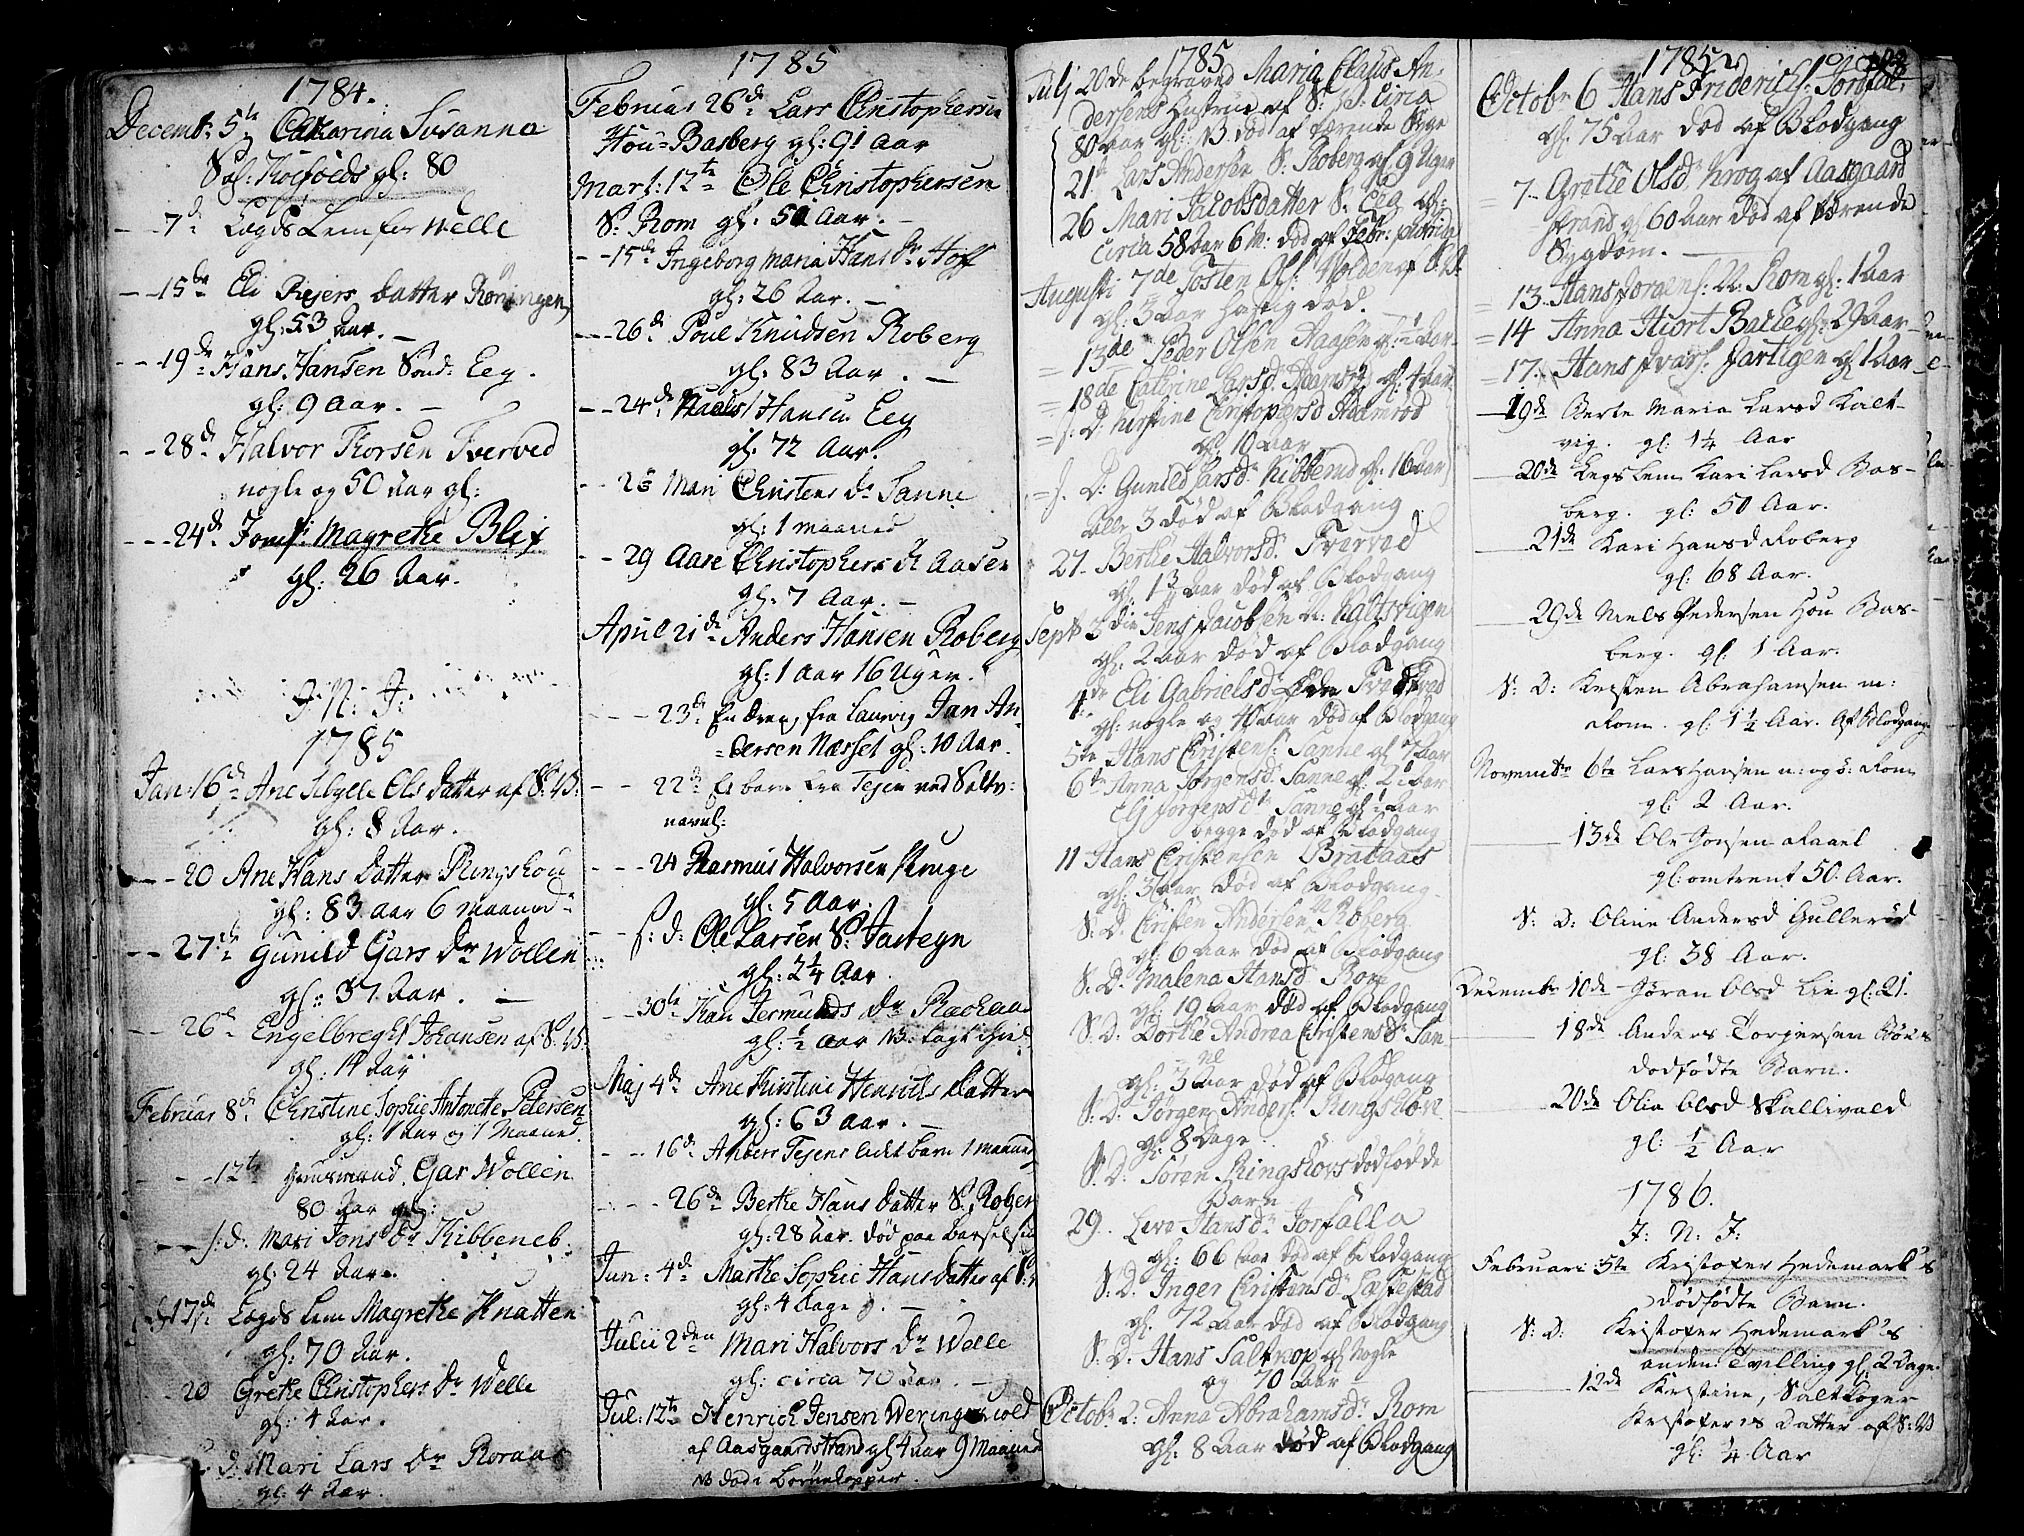 1784.
Decemb: 5te Catharina Susanna
Sal: Kolfoeds gl: 80
7de Lægds Lem fer Welle
15de Eli Rejers datter Röningen
gl: 53 Aar.
19de Hans Hansen Sönd: Eeg.
gl: 9 Aar.
28de Halvor Thorsen Tverved
nogle og 50 Aar gl:
24de Jomf: Magrethe Blix
gl: 26 Aar.
J: N: J:
1785
Jan: 16de Ane Sibylle Ols datter af S: B:
gl: 8 Aar.
20 Ane Hans datter Ringshou
gl: 83 aar 6 maaned
27de Gunild Gars Dr Wollen
gl: 37 Aar.
26de Engelbreght Johansen af S: B:
gl: 14 Aar
Februar 8de Christine Sophie Antonette Petersen
gl: 1 Aar og 1 Maaned.
12te Huusmand Gar Wollen
80 Aar gl:
s: d: Mari Jons Dr Kibbeneb.
gl: 24 Aar.
17de Lægds Lem Magrethe Knatten
gl: 70 Aar.
20 Grethe Christophers Dr Welle
gl: 4 Aar.
d: Mari Lars Dr Roraas
gl: 4 Aar.
1785
Februar 26de Lars Christophersen
Hou=Basberg gl: 91 Aar
Mart: 12te Ole Christophersen
S: Rom gl: 51 Aar.
15de Ingeborg Maria Hans Dr Hoff
gl: 26 Aar.
26de Poul Knudsen Roberg
gl: 83 Aar.
24de Hansen Eeg
gl: 72 Aar.
26 Mari Christens Dr Sanne
gl: 1 maaned
29 Aase Christophers Dr Aasen
gl: 7 Aar.
April 21de Anders Hansen Roberg
gl: 1 Aar 16 Uger.
23de En dreng fra Laurvig Jan An-
=dersen Næsset gl: 10 Aar.
22de Et barn fra Tejen ved Saltv-
24 Rasmus Halvorsen Kruge
gl: 5 Aar.
s: d: Ole Larsen S: Jartegn
gl: 2¼ Aar.
30te Kari Jermunds Dr
gl: ½ aar NB:
Maj 4de Ane Kirstine Henrichs datter
gl: 63 aar.
16de Anders Tejens barn 1 maaned
26de Berthe Hans datter S: Roberg
gl: 28 aar. død paa Barselseng
Jun: 4de Marthe Sophie Hans datter af S:
gl: 4 dage.
Julii 2den Mari Halvors Dr Welle
gl: circa 70 Aar.
Jul: 12te Henrich Jensen Weringschiold
af Aasgaardstrand gl: 4 aar 9 Maaned
NB døde Børnekopper.
1785
Julj 20de begraved Maria Claus An-
dersens Hustrue af S: B: circa
80 aar gl: NB død af tærende Syge
21de Lars Andersen S: Roberg gl: 9 Uger
26 Mari Jacobsdatter S: Eeg gl:
circa 58 Aar 6 M: død af Febr: putrid
Augusti 7de Tosten Ols: Wolden af S: B:
gl: 3 aar hastig død.
13de Peder Olsen Aasen gl: ½ Aar
18de Cathrine Larsd: gl: 4 aar
s: D: Kirstine Christopersd:
gl: 10 aar
s: D: Gunild Larsd: Kibberud gl: 16 aar
alle 3 død af Blodgang
27. Berthe Halvorsd: Tverved
gl: 1 Aar død af Blodgang
Septb 3die Jens Jacobsen N: Kaltsvigen
gl: 2 aar død af Blodgang
4de Eli Gabrielsd: Tverved
gl: nogle og 40 aar død af Blodgang
5te Hans Cristens: Sanne gl: 7 Aar
6te Anna Jörgensd: Sanne gl: 2½ aar
Elj Jorgens Dr Sanne gl: ½ Aar
begge død af Blodgang
11 Hans Cristensen Brataas
gl: 3 aar død af Blodgang
S: D: Cristen Andersen N: Roberg
gl: 6 aar død af Blodgang
S: D: Malena Hansd: Rom
gl: 19 Aar død af Blodgang
S: D: Dorthe Andrea Cristens Dr San-
ne
gl: 3 Aar død af Blodgang
S: D: Jørgen Anders: Ringshov
gl: 8 Dage.
S: D: Søren Ringshovs dødfødde
Barn
29. Leve Hansdr Jorfalla
gl: 66 Aar død af Blodgang
S: D: Inger Cristensd: Lastestad
gl: 72 aar død af Blodgang
S: D: Hans Saltkop gl: nogle
og 70 Aar
Octob: 2: Anna Abrahamsd: Rom
gl: 8 Aar død af Blodgang
1785
Octobr 6 Hans Friderichs: Jorsfal
gl: 75 Aar død af Blodgang
7. Grethe Olsdr Krog af Aasgaard
strand gl: 60 Aar død af tærende
Sygdom.
13. Hans Jorgens: N: Rom gl: 1 Aar
14 Anna Hiort Bache gl: 29 Aar
17. Hans Ivars: Jartigen gl: 1 Aar
19de Maria Larsd Kalt-
vig. gl: 1¼ Aar
20de Legs Lem Kari Larsd Bas-
berg. gl: 50 Aar.
21de Kari Hansd Roberg
gl: 68 Aar.
29de Niels Pedersen Hou Bas-
berg. gl: 1 Aar.
S: D: Kristen Abrahamsen m:
Rom. gl: 1½ Aar. Af Blodgang
Novembr 6te Lars Hansen n: og ö: Rom
gl: 2 Aar.
13de Ole Jonsen Raael
gl: omtrent 50. Aar.
S: D: Oline Andersd Gullerød
gl: 38 Aar.
Decembr 10de Jöran Olsd Lie gl: 21.
18de Anders Torgersen
dodfødte Barn.
20de Olia Olsd Skallivald
gl: ½ Aar
1786.
J: N: J:
Februari 5te Kristofer Hedemark's
dødfødte Barn.
S: D: Kristofer Hedemark's
anden Tvilling gl: 2 Dage.
12de Kristine, Saltkoger
Kristofers Datter af S: B
gl: ¼ Aar